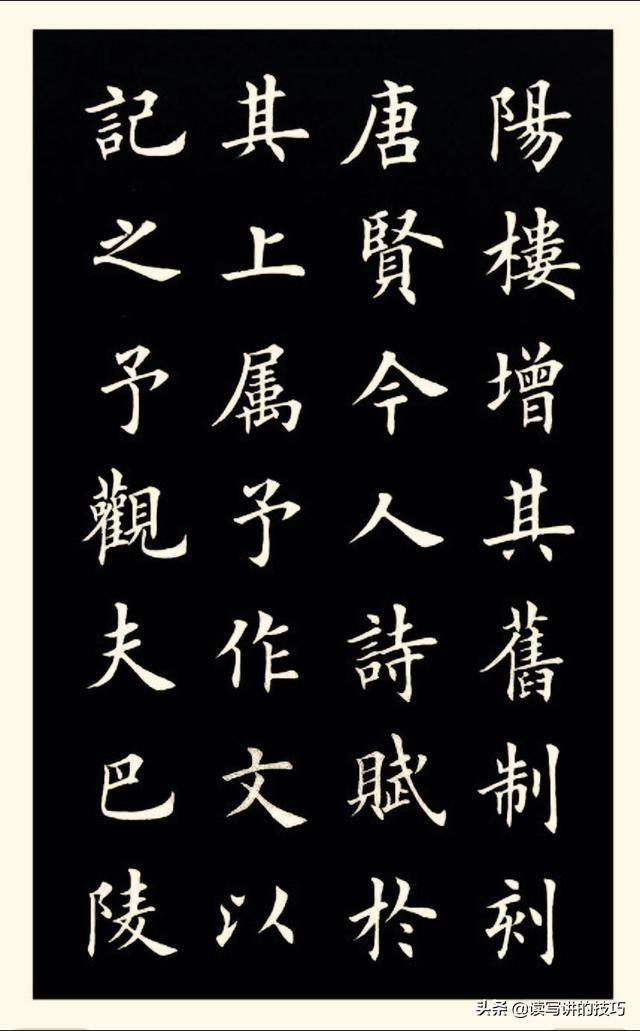 陽樓增其舊制刻
唐賢今人詩賦於
其上属予作文以
記之予觀夫巴陵
头条 @读写讲的技巧